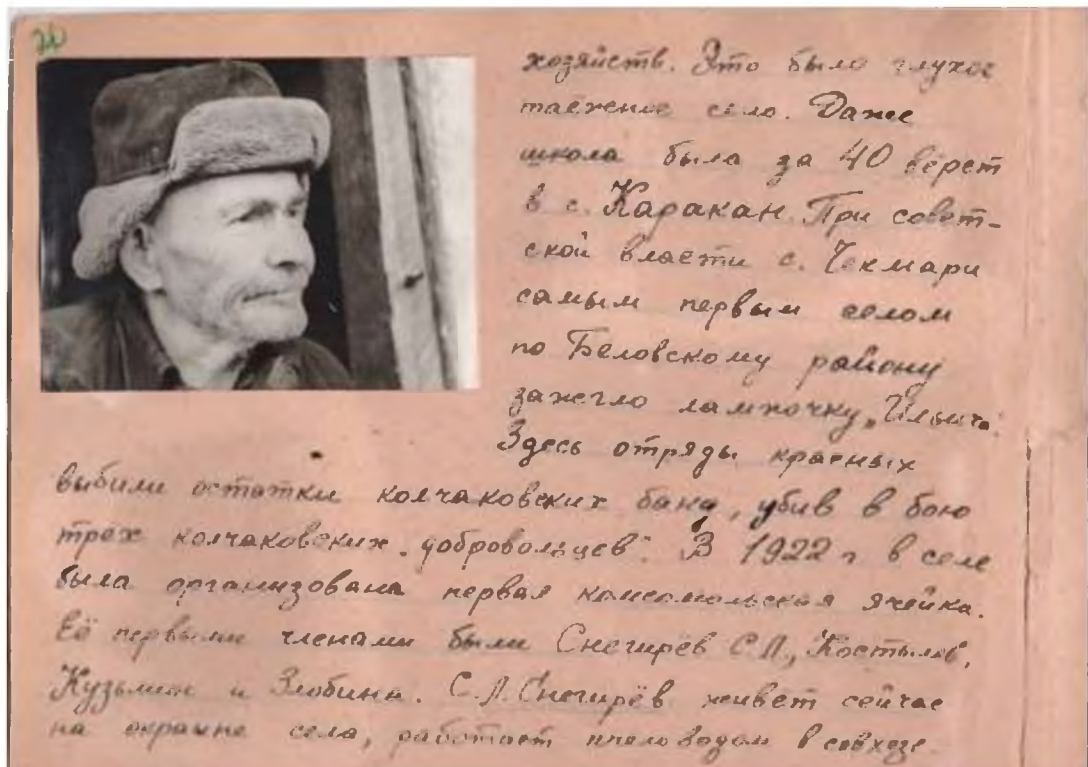 20
хозяйств. Это было глухое
таёжное село. Даже
школа была за 40 вёрст
в с. Каракан. При совет-
ской власти с. Чекмари
самым первым селом
по Беловскому району
зажегло лампочку „Ильича"
Здесь отряды красных
выбили остатки колчаковских банд, убив в бою
трех колчаковских „добровольцев". В 1922 г в селе
была организована первая комсомольская ячейка.
Её первыми членами были Снегирёв С.Л., Костылев,
Кузьмин и Злобина. С.Л. Снегирёв живет сейчас
на окраине села, работает пчеловодом в совхозе.